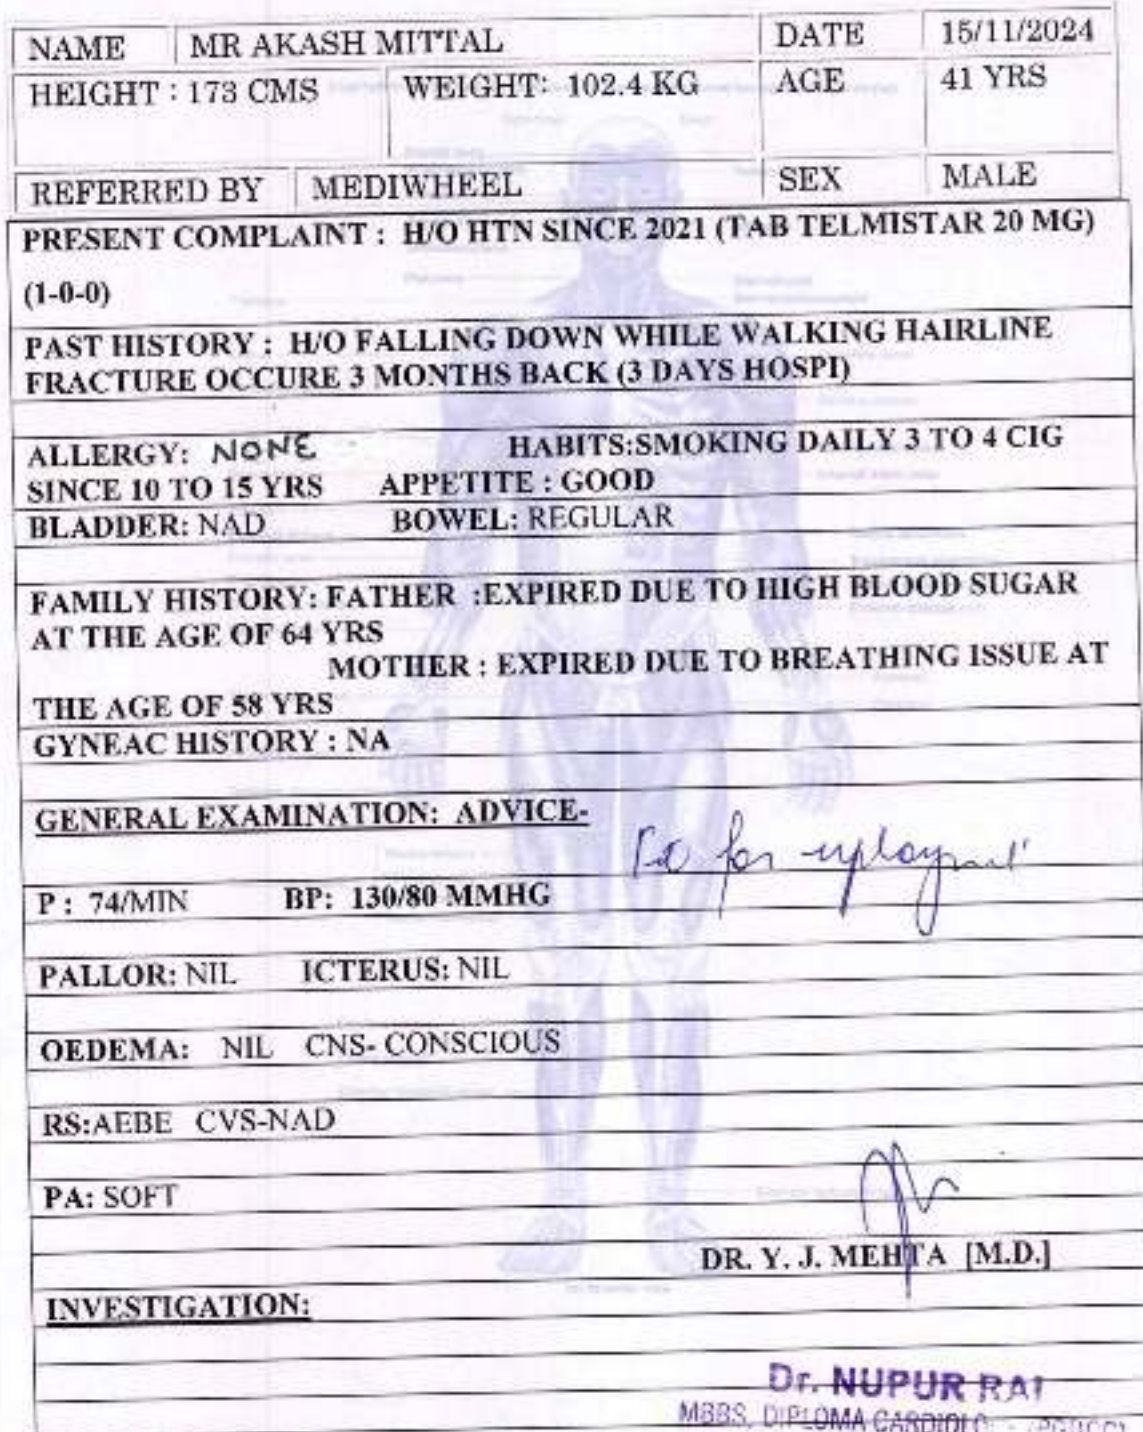 NAME MR AKASH MITTAL DATE 15/11/2024
HEIGHT : 173 CMS WEIGHT: 102.4 KG AGE 41 YRS
REFERRED BY MEDIWHEEL SEX MALE
PRESENT COMPLAINT : H/O HTN SINCE 2021 (TAB TELMISTAR 20 MG)
(1-0-0)
PAST HISTORY : H/O FALLING DOWN WHILE WALKING HAIRLINE
FRACTURE OCCURE 3 MONTHS BACK (3 DAYS HOSPI)
ALLERGY: NONE HABITS:SMOKING DAILY 3 TO 4 CIG
SINCE 10 TO 15 YRS APPETITE : GOOD
BLADDER: NAD BOWEL: REGULAR
FAMILY HISTORY: FATHER :EXPIRED DUE TO HIGH BLOOD SUGAR
AT THE AGE OF 64 YRS
MOTHER : EXPIRED DUE TO BREATHING ISSUE AT
THE AGE OF 58 YRS
GYNEAC HISTORY : NA
GENERAL EXAMINATION: ADVICE-
for
P : 74/MIN BP: 130/80 MMHG
PALLOR: NIL ICTERUS: NIL
OEDEMA: NIL CNS- CONSCIOUS
RS:AEBE CVS-NAD
PA: SOFT
DR. Y. J. MEHTA [M.D.]
INVESTIGATION:
Dr. NUPUR RAI
MBBS, DIPLOMA